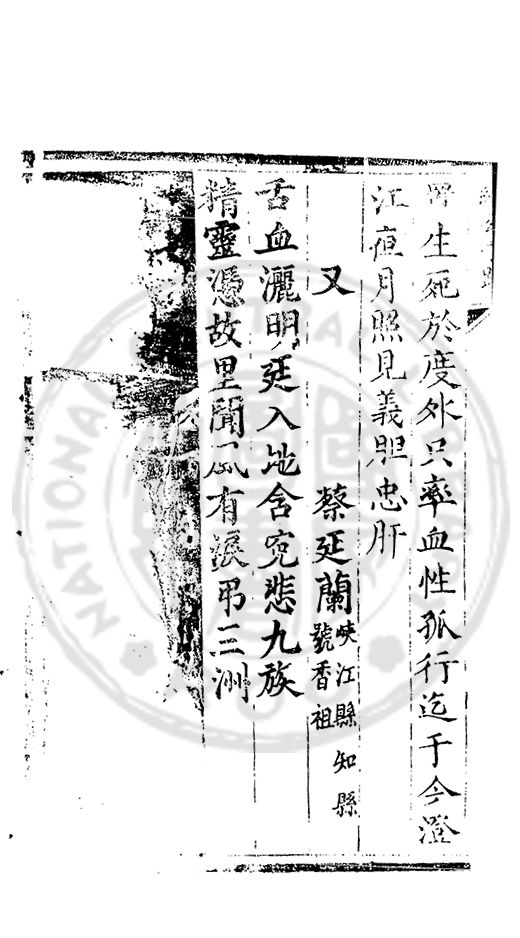 生死於度外只率血性孤行迄于今澄
江夜月照見義胆忠肝
又 蔡廷蘭 峽江縣知縣 號香祖
舌血灑明廷入地含冤悲九族
精靈憑故里聞風有淚弔三洲